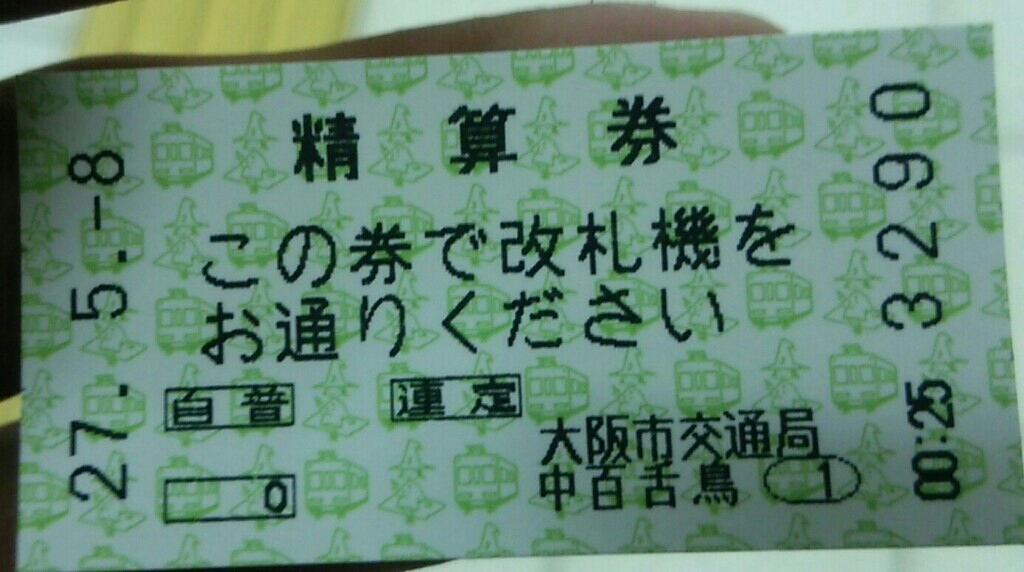 精算券
この券で改札機を
お通りください
百普 連定
0
大阪市交通局
中百舌鳥 1
27.5.-8
3290
00:25